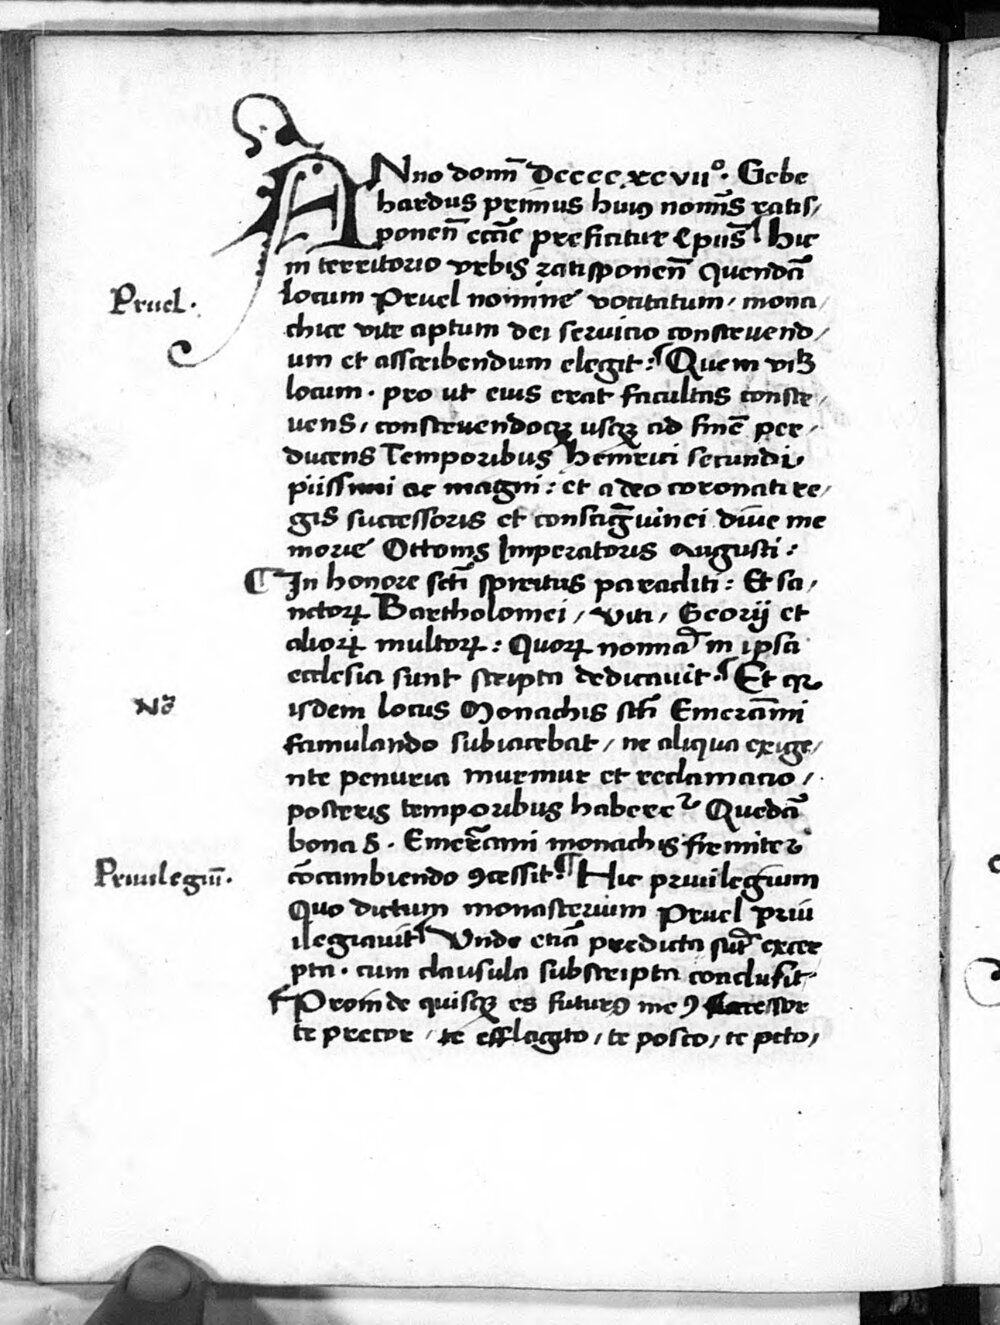 ANno domī Dcccc.xcvii°. Gebe
hardus primus huiꝰ nomīs ratis/
ponen̄ eccīe preficitur Epūs. Hic
in territorio vrbis ratisponen̄ Quendā
Pruel.
locum Pruel nomine vocitatum / mona/
chice vite aptum dei seruicio construend/
um et asscribendum elegit: Quem vꝫ
locum. pro ut eius erat facultas constr/
uens / construendoqꝫ usqꝫ ad finē per/
ducens Temporibus Heinrici secundi.
piissimi ac magni: et a deo coronati re/
gis successoris et consāgwinei diue me
morie Ottonis Imperatoris Augusti:
In honore scī spiritus paracliti: Et sa/
nctoꝝ Bartholomei / Viti / Georij et
alioꝝ multoꝝ: Quoꝝ nomīa in ipsa
ecclesia sunt scripta dedicauit. Et qꝛ
Nō
isdem locus Monachis scī Emerāmi
famulando subiacebat / ne aliqua exige/
nte penuria murmur et reclamacio /
posteris temporibus haberetᷣ Quedā
bona S. Emerāmi monachis firmiter
Priuilegiū.
cōcambiendo ꝯcessit. Hic priuilegium
Quo dictum monasterium Pruel priui
ilegiauit Vnde etiā predicta sūt excer
pta. cum clausula subscripta conclusit
Proinde quisqꝫ es futurꝰ meꝰ successor
te precor / te efflagito / te posco / te peto /